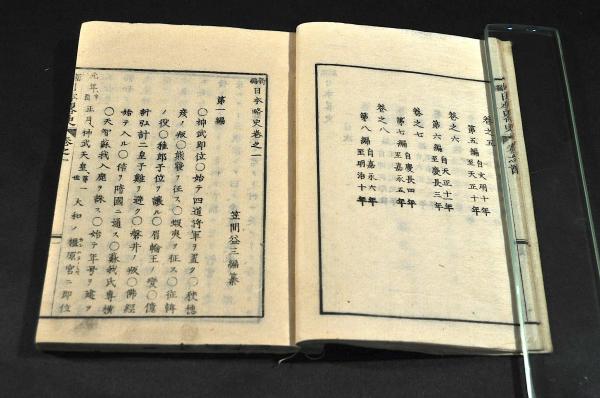 卷之五
第五編 自文明十年
至天正十年
卷之六
第六編 自天正十年
至慶長三年
卷之七
第七編 自慶長四年
至嘉永五年
卷之八
第八編 自嘉永六年
至明治十年
新編日本略史卷之一
笠間益三編纂
第一編
〇神武即位〇始テ四道將軍ヲ置ク〇狹穗
彦ノ叛〇熊襲ヲ征ス〇蝦夷ヲ征ス〇征韓
ノ役〇稚郎子位ヲ讓ル〇眉輪王ノ變〇億
計弘計二皇子難ヲ避ク〇磐井ノ叛〇佛經
始テ入ル〇隋國ニ通ス〇蘇我氏專横
〇天智蘇我入鹿ヲ誅ス〇始テ年号ヲ建ツ
元年正月神武天皇第一世大和ノ橿原宮ニ即位